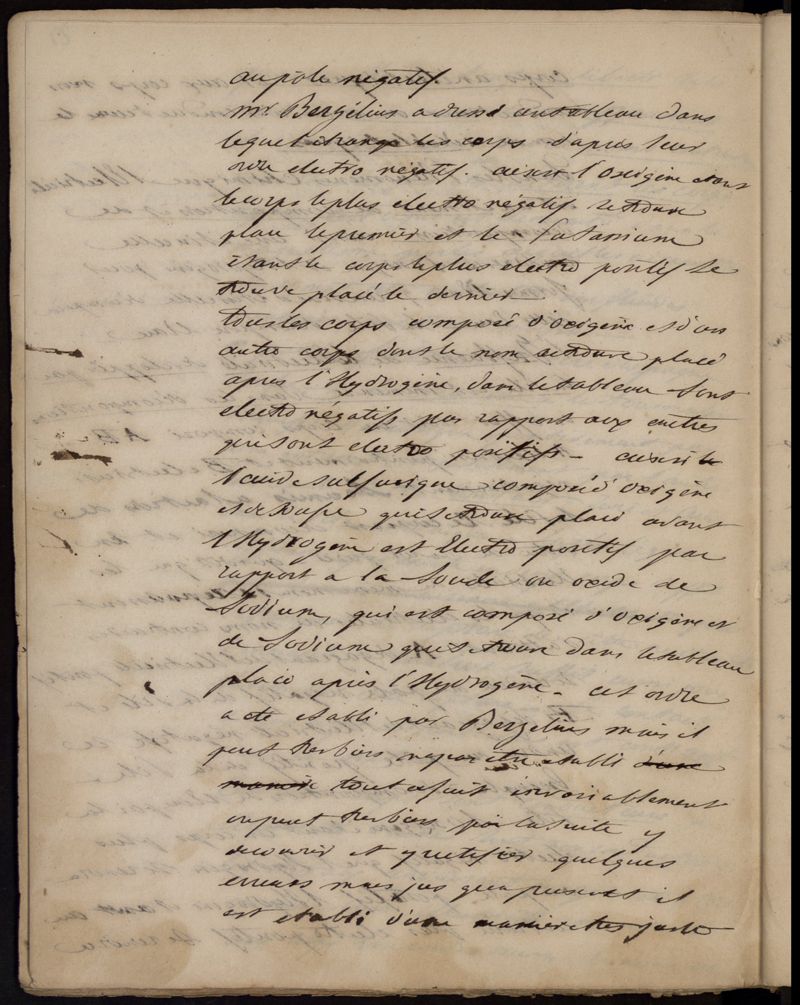 au pôle négatif.
Mr. Bergélius a dressé un tableau dans
lequel il range les corps d'apres leur
ordre electro négatif. ainsi l'oxigène etant
le corps le plus electro négatif se trouve
placé le premier et le Potassium
étant le corps le plus electro positif se
trouve placé le dernier
tous les corps composé d'oxigène et d'un
autre corps dont le nom se trouve placé
apres l'Hydrogène, dans le tableau sont
electro négatifs par rapport aux autres
qui sont electro positifs - ainsi
l'acide sulfurique composé d'oxigène
et de soufre qui se trouve placé avant
l'Hydrogène est Electro positif par
rapport a la Soude ou oxide de
Sodium, qui est composé d'oxigène et
de Sodium qui se trouve dans le tableau
placé après l'Hydrogène - cet ordre
a été etabli par Bergelius mais il
peut tres bien n'apas etre etabli d'une
maniere tout afait invariablement
on peut tres bien par la suite y
decouvrir et y rectifier quelques
erreurs mais jus qu'a present il
est etabli d'une manière tres juste